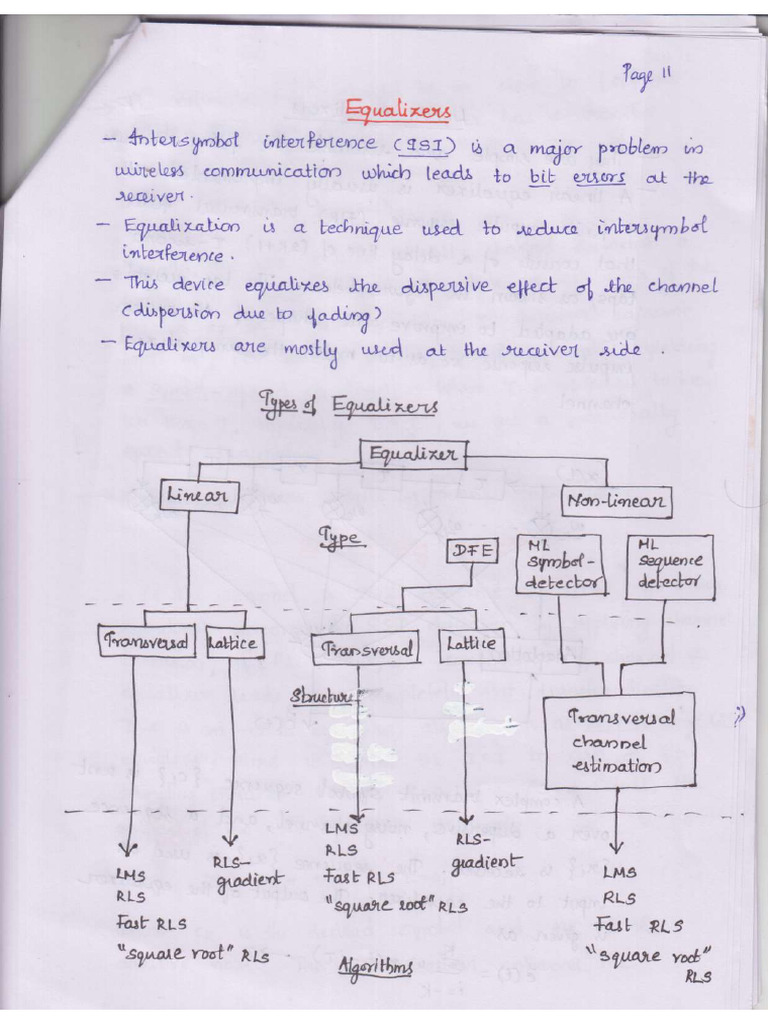 Page 11
Equalizers
- Intersymbol interference (ISI) is a major problem in
wireless communication which leads to bit errors at the
receiver.
- Equalization is a technique used to reduce intersymbol
interference.
- This device equalizes the dispersive effect of the channel
(dispersion due to fading)
- Equalizers are mostly used at the receiver side.
Types of Equalizers
Equalizer
Linear
Non-linear
Type
DFE
ML
symbol-
detector
ML
sequence
detector
Transversal
Lattice
Transversal
Lattice
Structure
Transversal
channel
estimation
LMS
RLS
Fast RLS
"square root" RLS
RLS-
gradient
LMS
RLS
Fast RLS
"square root" RLS
RLS-
gradient
LMS
RLS
Fast RLS
"square root"
RLS
Algorithms